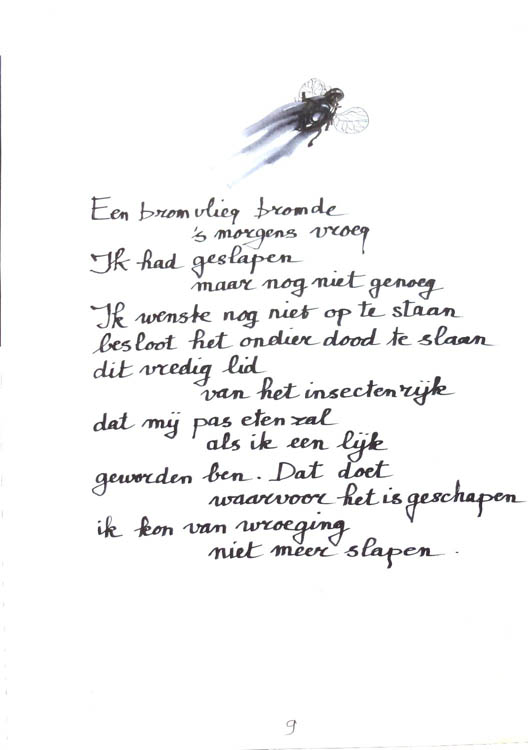 Een bromvlieg bromde
's morgens vroeg
Ik had geslapen
maar nog niet genoeg
Ik wenste nog niet op te staan
besloot het ondier dood te slaan
dit vredig lid
van het insectenrijk
dat mij pas eten zal
als ik een lijk
geworden ben. Dat doet
waarvoor het is geschapen
ik kon van wroeging
niet meer slapen.
9